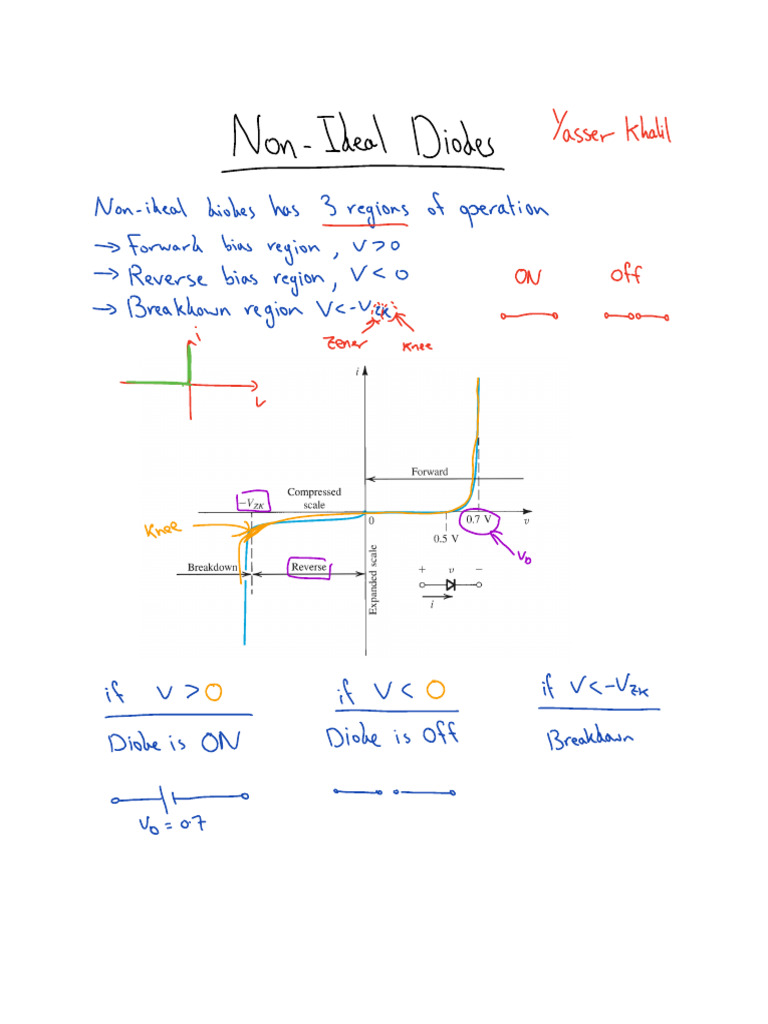 Non-Ideal Diodes
Yasser Khalil
Non-ideal diodes has 3 regions of operation
→ Forward bias region, V>0
→ Reverse bias region, V<0
→ Breakdown region V<-VZK
Zener
Knee
ON
Off
i
v
i
Forward
Compressed
scale
-VZK
Knee
0
0.5 V
0.7 V
v
VD
Breakdown
Reverse
Expanded scale
+ v −
i
if V > 0
Diode is ON
VD = 0.7
if V < 0
Diode is Off
if V < -VZK
Breakdown